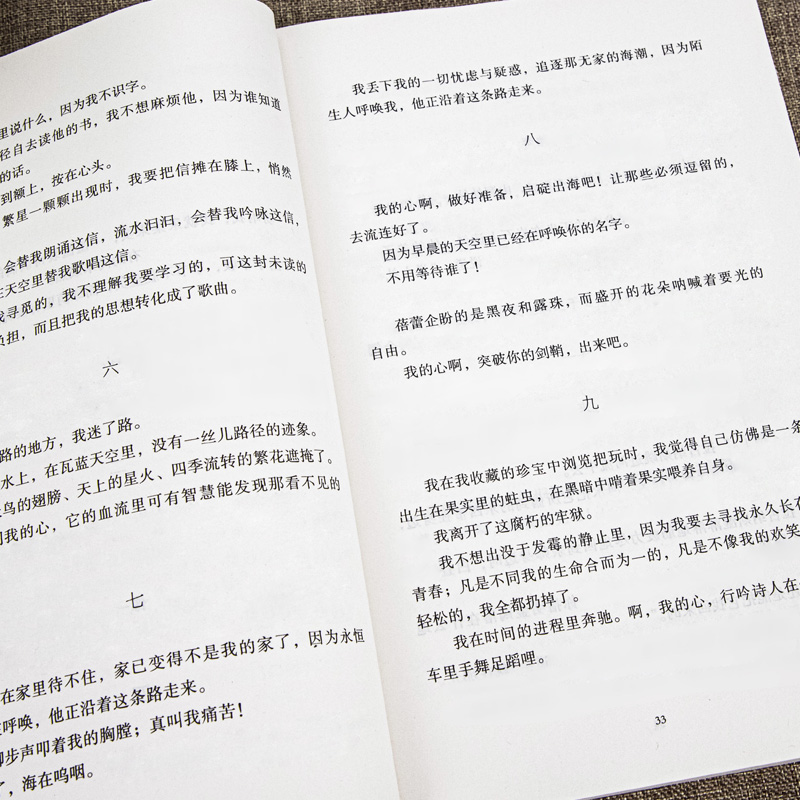 里说什么，因为我不识字。
轻自去读他的书，我不想麻烦他，因为谁知道
的话。
到额上，按在心头。
繁星一颗颗出现时，我要把信摊在膝上，悄然
会替我朗诵这信，流水汩汩，会替我吟咏这信，
天空里替我歌唱这信。
寻觅的，我不理解我要学习的，可这封未读的
负担，而且把我的思想转化成了歌曲。
六
路的地方，我迷了路。
水上，在瓦蓝天空里，没有一丝儿路径的迹象。
鸟的翅膀、天上的星火、四季流转的繁花遮掩了。
我的心，它的血流里可有智慧能发现那看不见的
七
在家里待不住，家已变得不是我的家了，因为永恒
呼唤，他正沿着这条路走来。
脚步声叩着我的胸膛；真叫我痛苦！
，海在呜咽。
我丢下我的一切忧虑与疑惑，追逐那无家的海潮，因为陌
生人呼唤我，他正沿着这条路走来。
八
我的心啊，做好准备，启碇出海吧！让那些必须逗留的，
去流连好了。
因为早晨的天空里已经在呼唤你的名字。
不用等待谁了！
蓓蕾企盼的是黑夜和露珠，而盛开的花朵呐喊着要光的
自由。
我的心啊，突破你的剑鞘，出来吧。
九
我在我收藏的珍宝中浏览把玩时，我觉得自己仿佛是一条
出生在果实里的蛀虫，在黑暗中啃着果实喂养自身。
我离开了这腐朽的牢狱。
我不想出没于发霉的静止里，因为我要去寻找永久长在
青春；凡是不同我的生命合而为一的，凡是不像我的欢笑
轻松的，我全都扔掉了。
我在时间的进程里奔驰。啊，我的心，行吟诗人在
车里手舞足蹈哩。
33